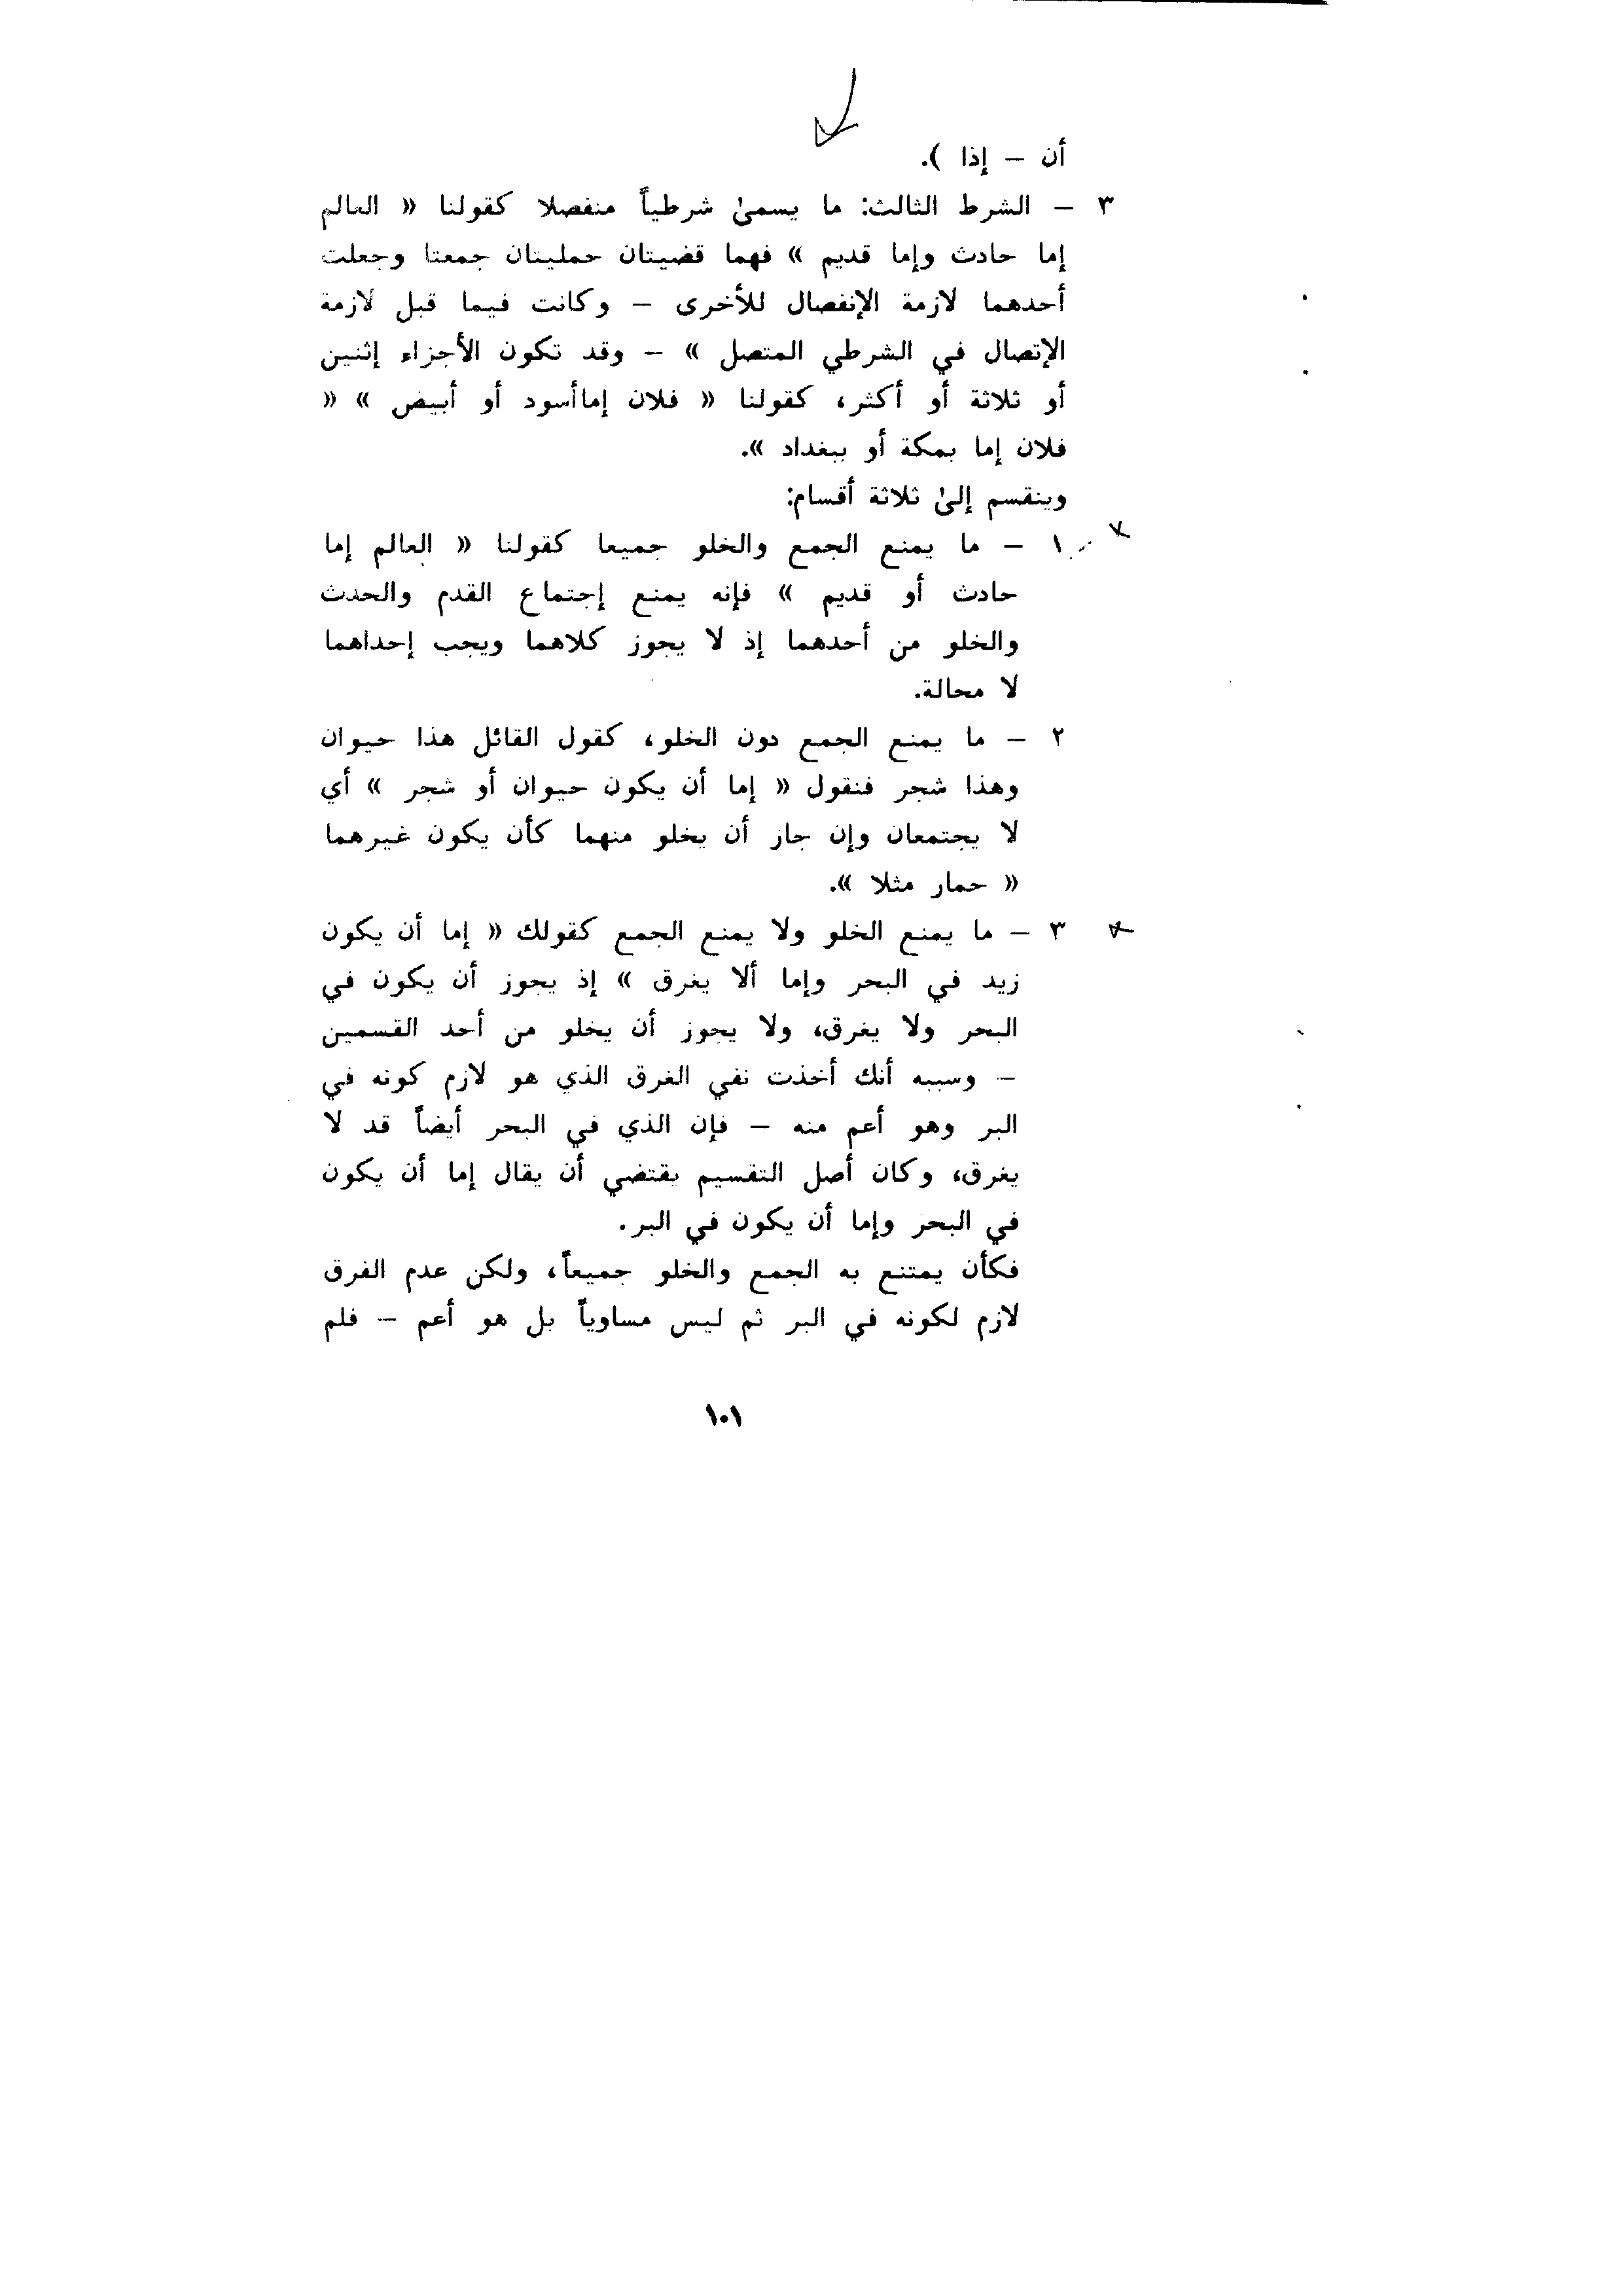 أن – إذا ).
٣ – الشرط الثالث: ما يسمىٰ شرطياً منفصلا كقولنا « العالم
إما حادث وإما قديم » فهما قضيتان حمليتان جمعتا وجعلت
أحدهما لازمة الإنفصال للأخرى – وكانت فيما قبل لازمة
الإتصال في الشرطي المتصل » – وقد تكون الأجزاء إثنين
أو ثلاثة أو أكثر، كقولنا « فلان إماأسود أو أبيض » «
فلان إما بمكة أو ببغداد ».
وينقسم إلىٰ ثلاثة أقسام:
١ – ما يمنع الجمع والخلو جميعا كقولنا « العالم إما
حادث أو قديم » فإنه يمنع إجتماع القدم والحدث
والخلو من أحدهما إذ لا يجوز كلاهما ويجب إحداهما
لا محالة.
٢ – ما يمنع الجمع دون الخلو، كقول القائل هذا حيوان
وهذا شجر فنقول « إما أن يكون حيوان أو شجر » أي
لا يجتمعان وإن جاز أن يخلو منهما كأن يكون غيرهما
« حمار مثلا ».
٣ – ما يمنع الخلو ولا يمنع الجمع كقولك « إما أن يكون
زيد في البحر وإما ألا يغرق » إذ يجوز أن يكون في
البحر ولا يغرق، ولا يجوز أن يخلو من أحد القسمين
– وسببه أنك أخذت نفي الغرق الذي هو لازم كونه في
البر وهو أعم منه – فإن الذي في البحر أيضاً قد لا
يغرق، وكان أصل التقسيم يقتضي أن يقال إما أن يكون
في البحر وإما أن يكون في البر.
فكأن يمتنع به الجمع والخلو جميعاً، ولكن عدم الفرق
لازم لكونه في البر ثم ليس مساوياً بل هو أعم – فلم
١٠١